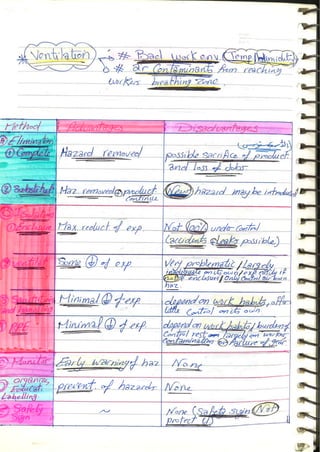 * Ventilation # Bad work env. (Temp/Humidity)
# air Contaminants from reaching
workers breathing zone.
Method Advantages Disadvantages
① Elimination
Complete Hazard removed possible sacrifice of product
and loss of Jobs
② Substitute Haz. removed product
continue
New hazard may be introduced
Enclosure Max. reduct of exp. Not 100% under control
(accidents leaks possible)
Some ↓ of exp. Very problematic / Largely
Minimal ↓ of exp depend on work habits, offer
little control on its own
PPE Minimal ↓ of exp. depend on work habits / burden of
control rest on worker
contamination or failure of gear
Monitor Early warning of haz None
organize,
Educati
Labelling prevent. of hazards None
Safety
Sign ~ None (Safety sign Not
protect U)